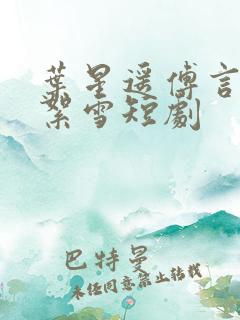 葉星遥傅言
絮雪短劇
巴特曼
未经同意禁止转载